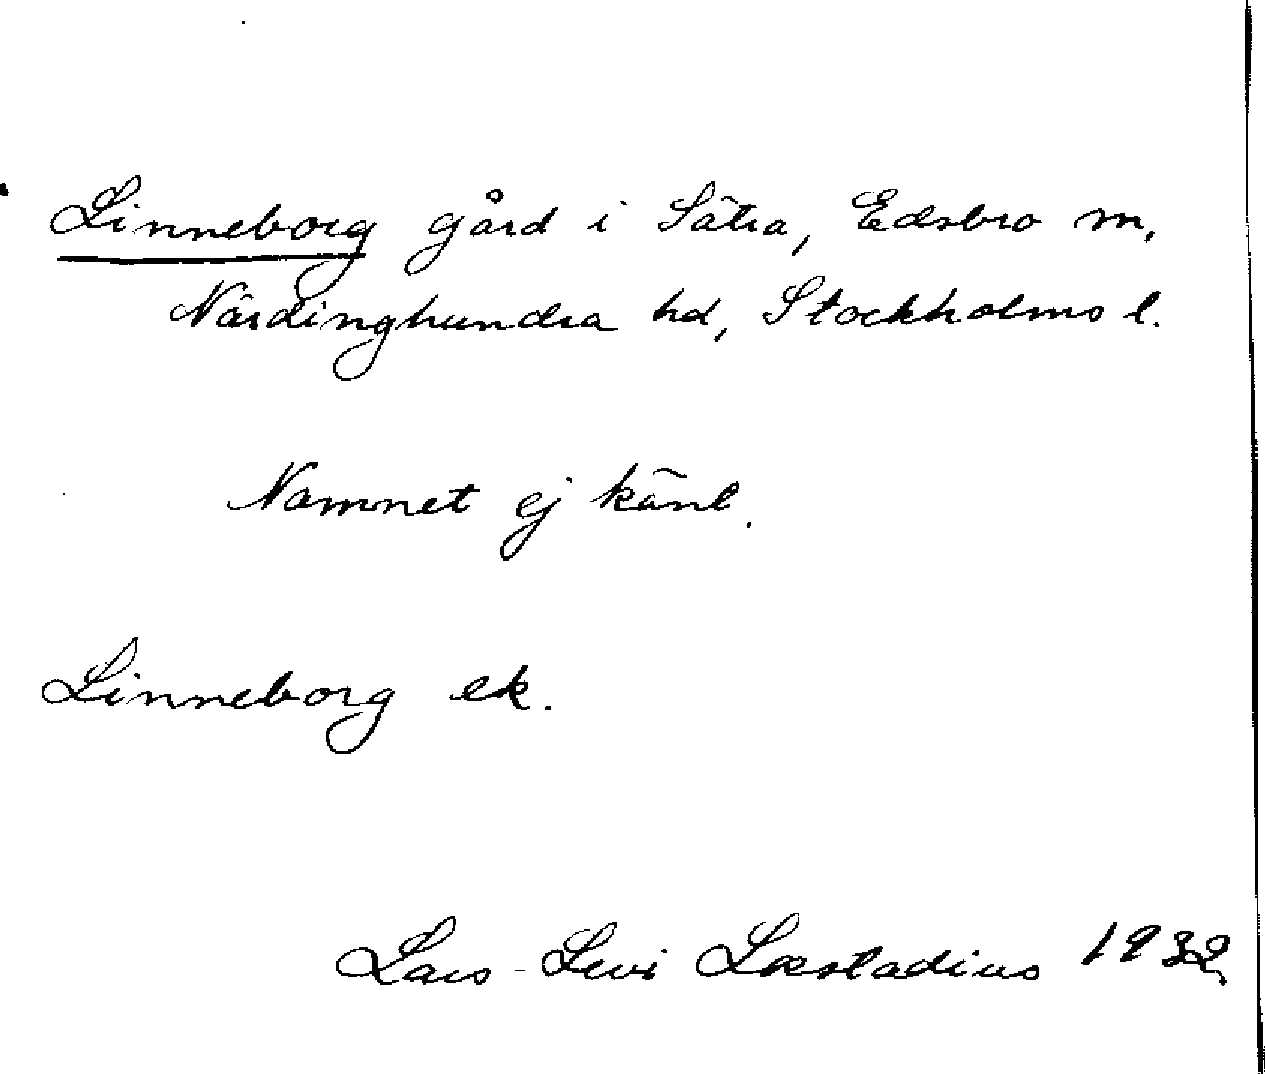 Linneborg gård i Sätra, Edsbro sn,
Närdinghundra hd, Stockholms l.
Namnet ej känt.
Linneborg ek.
Lars-Levi Læstadius 1932